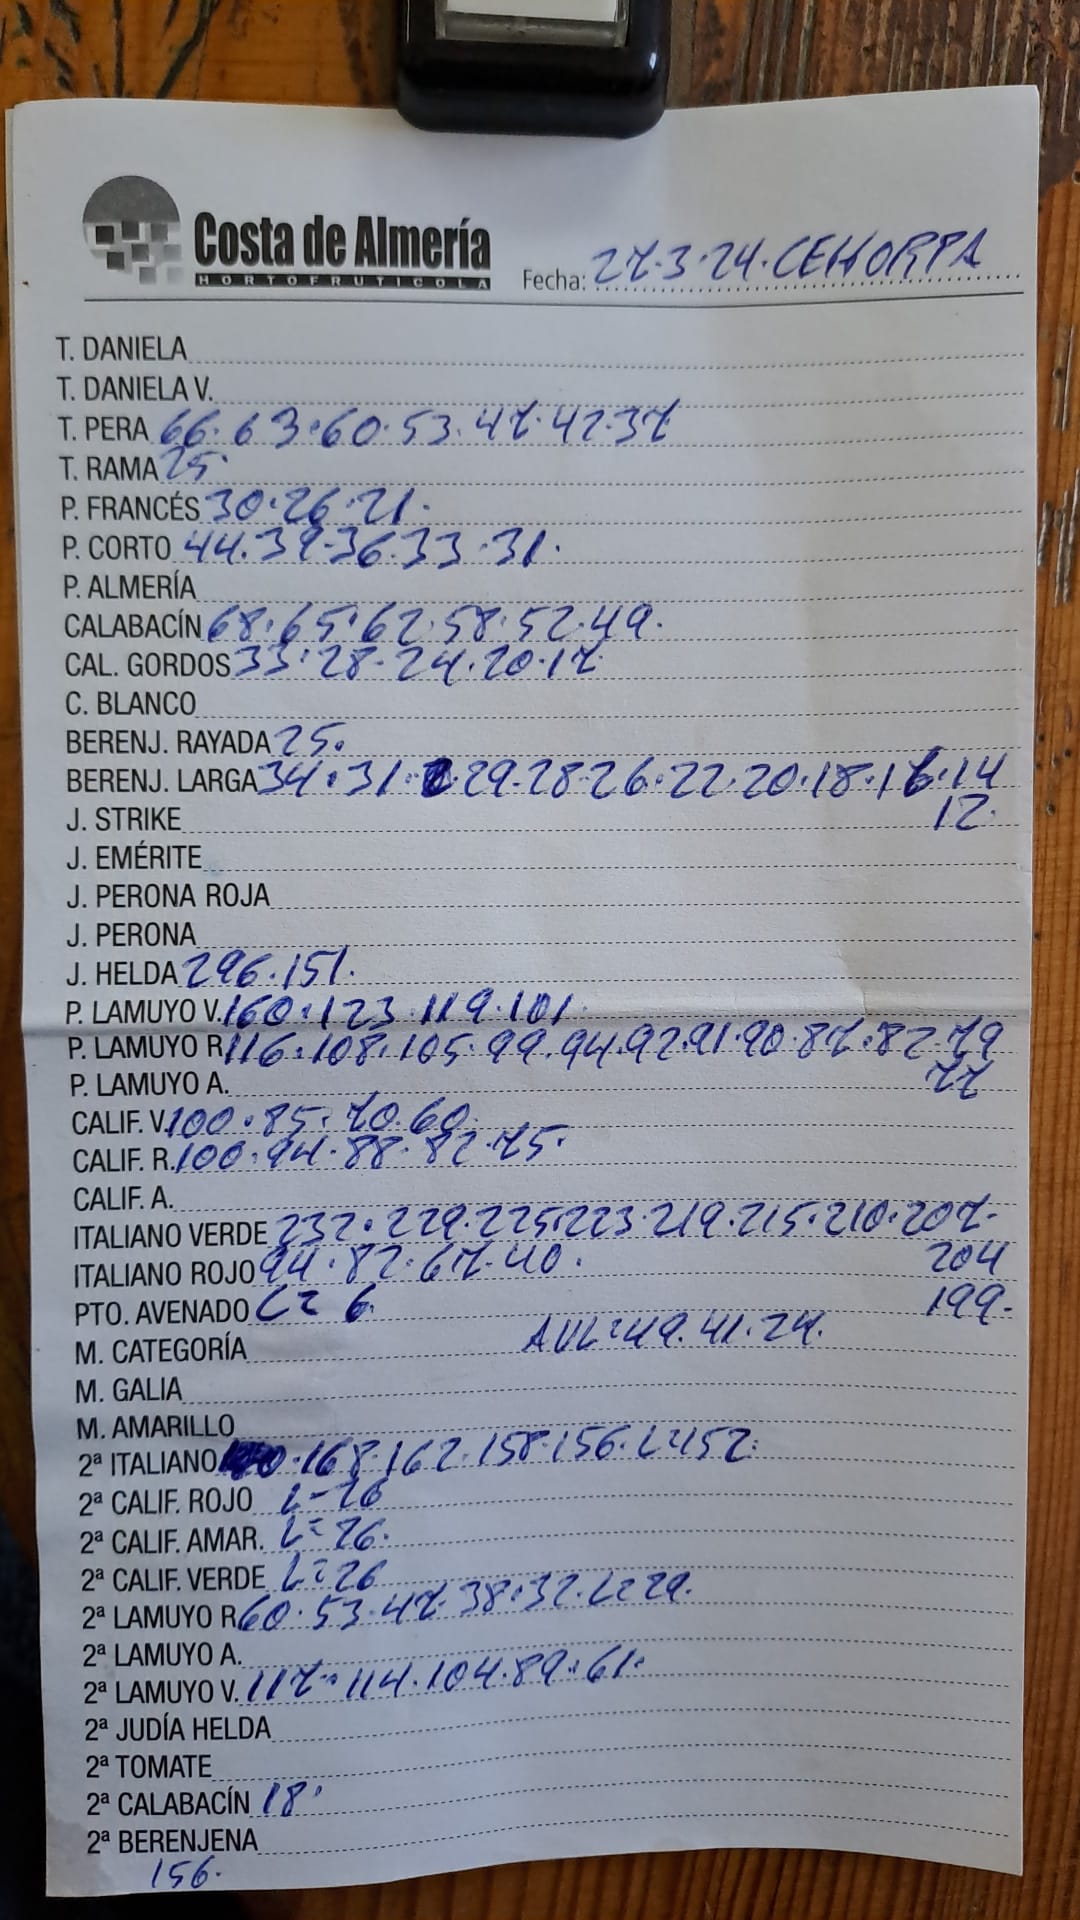 Costa de Almería
HORTOFRUTICOLA
Fecha: 27.3.24. CEHORPA
T. DANIELA
T. DANIELA V.
T. PERA 66.63.60.53.47.42.37
T. RAMA 25.
P. FRANCÉS 30.26.21.
P. CORTO 44.39.36.33.31.
P. ALMERÍA
CALABACÍN 68.65.62.58.52.49.
CAL. GORDOS 33.28.24.20.17.
C. BLANCO
BERENJ. RAYADA 25.
BERENJ. LARGA 34.31.29.28.26.22.20.18.16.14
12.
J. STRIKE
J. EMÉRITE
J. PERONA ROJA
J. PERONA
J. HELDA 296.151.
P. LAMUYO V. 160.123.119.101.
P. LAMUYO R. 116.108.105.99.94.92.91.90.87.82.79
77
P. LAMUYO A.
CALIF. V. 100.85.70.60.
CALIF. R. 100.94.88.82.75.
CALIF. A.
ITALIANO VERDE 232.229.225.223.219.215.210.207.
204
199.
ITALIANO ROJO 94.82.67.40.
PTO. AVENADO L=6.
AVL=49.41.24.
M. CATEGORÍA
M. GALIA
M. AMARILLO
2ª ITALIANO .168.162.158.156.L=152.
2ª CALIF. ROJO L=26
2ª CALIF. AMAR. L=26.
2ª CALIF. VERDE L=26
2ª LAMUYO R. 60.53.47.38.32.L=29.
2ª LAMUYO A.
2ª LAMUYO V. 117.114.104.89.61.
2ª JUDÍA HELDA
2ª TOMATE
2ª CALABACÍN 18.
2ª BERENJENA
156.